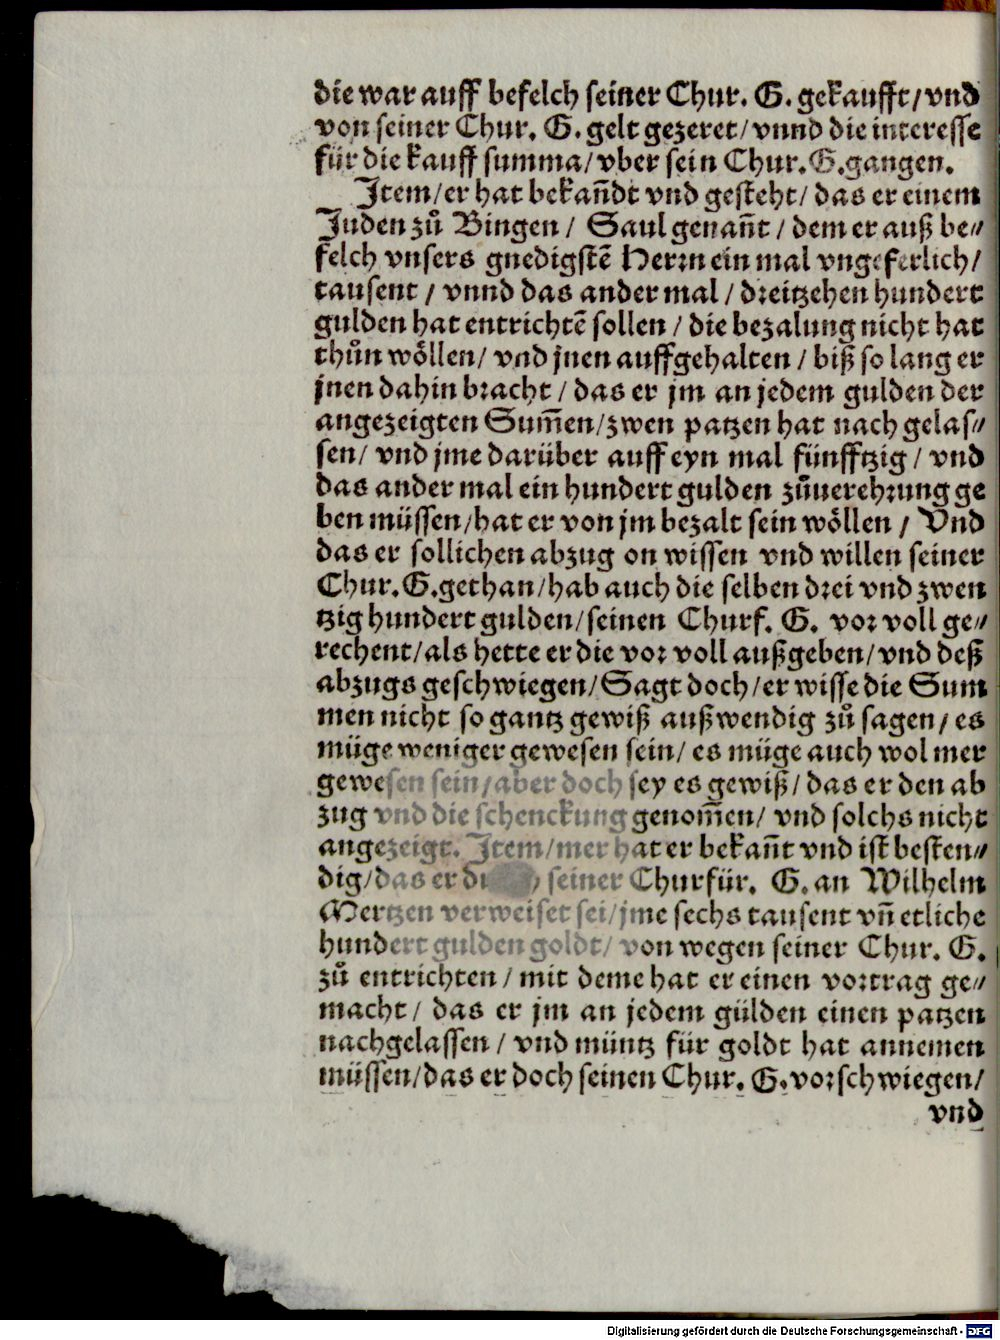 die war auff befelch seiner Chur. G. gekaufft/vnd
von seiner Chur. G. gelt gezeret/vnnd die interesse
für die kauff summa/vber sein Chur.G.gangen.
Item/er hat bekañdt vnd gesteht/das er einem
Juden zů Bingen/ Saul genañt/dem er auß be⸗
felch vnsers gnedigstẽ Herrn ein mal vngeferlich/
tausent/vnnd das ander mal/dreitzehen hundert
gulden hat entrichtẽ sollen/die bezalung nicht hat
thůn wöllen/vnd jnen auffgehalten/biß so lang er
jnen dahin bracht/das er jm an jedem gulden der
angezeigten Sum̃en/zwen patzen hat nach gelas⸗
sen/vnd jme darüber auff eyn mal fünfftzig/vnd
das ander mal ein hundert gulden zůuerehrung ge
ben müssen/hat er von jm bezalt sein wöllen/Vnd
das er sollichen abzug on wissen vnd willen seiner
Chur.G.gethan/hab auch die selben drei vnd zwen
tzig hundert gulden/seinen Churf. G. vor voll ge⸗
rechent/als hette er die vor voll außgeben/vnd deß
abzugs geschwiegen/Sagt doch/er wisse die Sum
men nicht so gantz gewiß außwendig zů sagen/es
müge weniger gewesen sein/es müge auch wol mer
gewesen sein/aber doch sey es gewiß/das er den ab
zug vnd die schenckung genom̃en/vnd solchs nicht
angezeigt. Item/mer hat er bekañt vnd ist besten⸗
dig/das er seiner Churfür. G. an Wilhelm
Mertzen verweiset sei/jme sechs tausent vñ etliche
hundert gulden goldt/von wegen seiner Chur. G.
zů entrichten/mit deme hat er einen vortrag ge⸗
macht/das er jm an jedem gülden einen patzen
nachgelassen/vnd müntz für goldt hat annemen
müssen/das er doch seinen Chur. G.vorschwiegen/
vnd
Digitalisierung gefördert durch die Deutsche Forschungsgemeinschaft - DFG